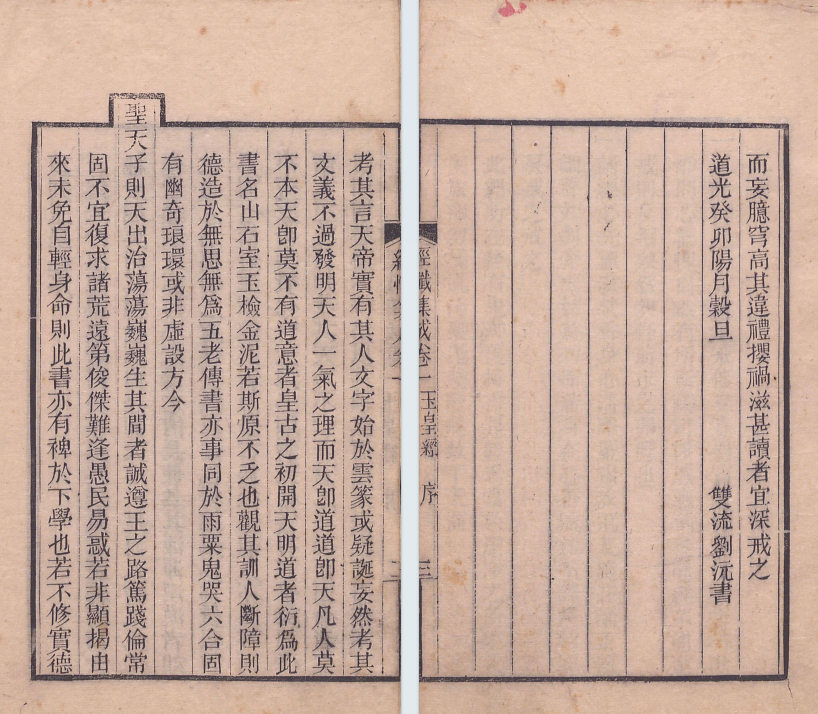 考其言天帝實有其人文字始於雲篆或疑誕妄然考其
文義不過發明天人一氣之理而天卽道道卽天凡人莫
不本天卽莫不有道意者皇古之初開天明道者衍爲此
書名山石室玉檢金泥若斯原不乏也觀其訓人斷障則
德造於無思無爲五老傳書亦事同於雨粟鬼哭六合固
有幽奇琅環或非虛設方今
聖天子則天出治蕩蕩巍巍生其間者誠遵王之路篤踐倫常
固不宜復求諸荒遠第俊傑難逢愚民易惑若非顯揭由
來未免自輕身命則此書亦有裨於下學也若不修實德
而妄臆穹高其違禮攖禍滋甚讀者宜深戒之
道光癸卯陽月穀旦 雙流劉沅書
經懺集成卷一 玉皇經 序 三